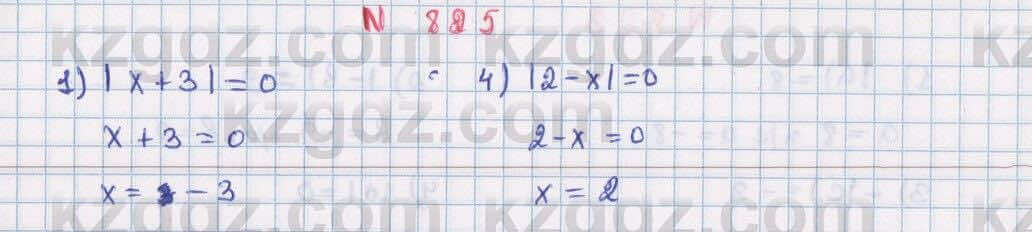 N 825
1) |x+3|=0
x+3=0
x=-3
4) |2-x|=0
2-x=0
x=2
kzgdz.com
kzgdz.com
kzgdz.com
kzgdz.com
kzgdz.com